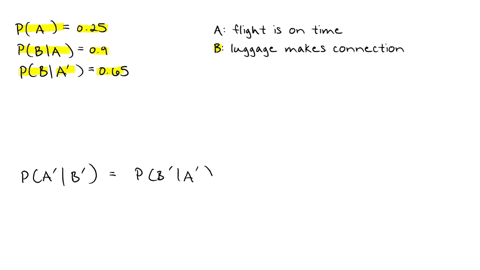 P(A) = 0.25
P(B|A) = 0.9
P(B|A′) = 0.65
A: flight is on time
B: luggage makes connection
P(A′|B′) = P(B′|A′)